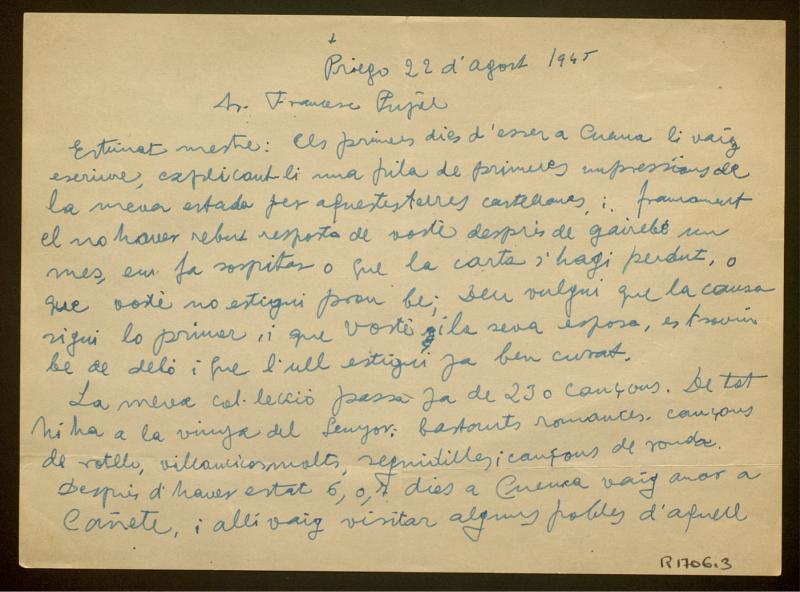 +
Priego 22 d'agost 1945
Sr. Francesc Pujol
Estimat mestre: Els primers dies d'esser a Cuenca li vaig
escriure, explicant-li una pila de primeres impressions de
la meva estada per aquestes terres castellanes, i francament
el no haver rebut resposta de vostè desprès de gairebé un
mes, em fa sospitar o que la carta s'hagi perdut, o
que vostè no estigui prou be; Deu vulgui que la causa
sigui lo primer, i que vostè i la seva esposa, es trovin
be de debò i que l'ull estigui ja ben curat.
La meva col·lecció passa ja de 230 cançons. De tot
hi ha a la vinya del Senyor: bastants romances. cançons
de rotllo, villancicos molts, seguidilles i cançons de ronda.
Desprès d'haver estat 6, o, 7 dies a Cuenca vaig anar a
Cañete, i allí vaig visitar alguns pobles d'aquell
R1706.3